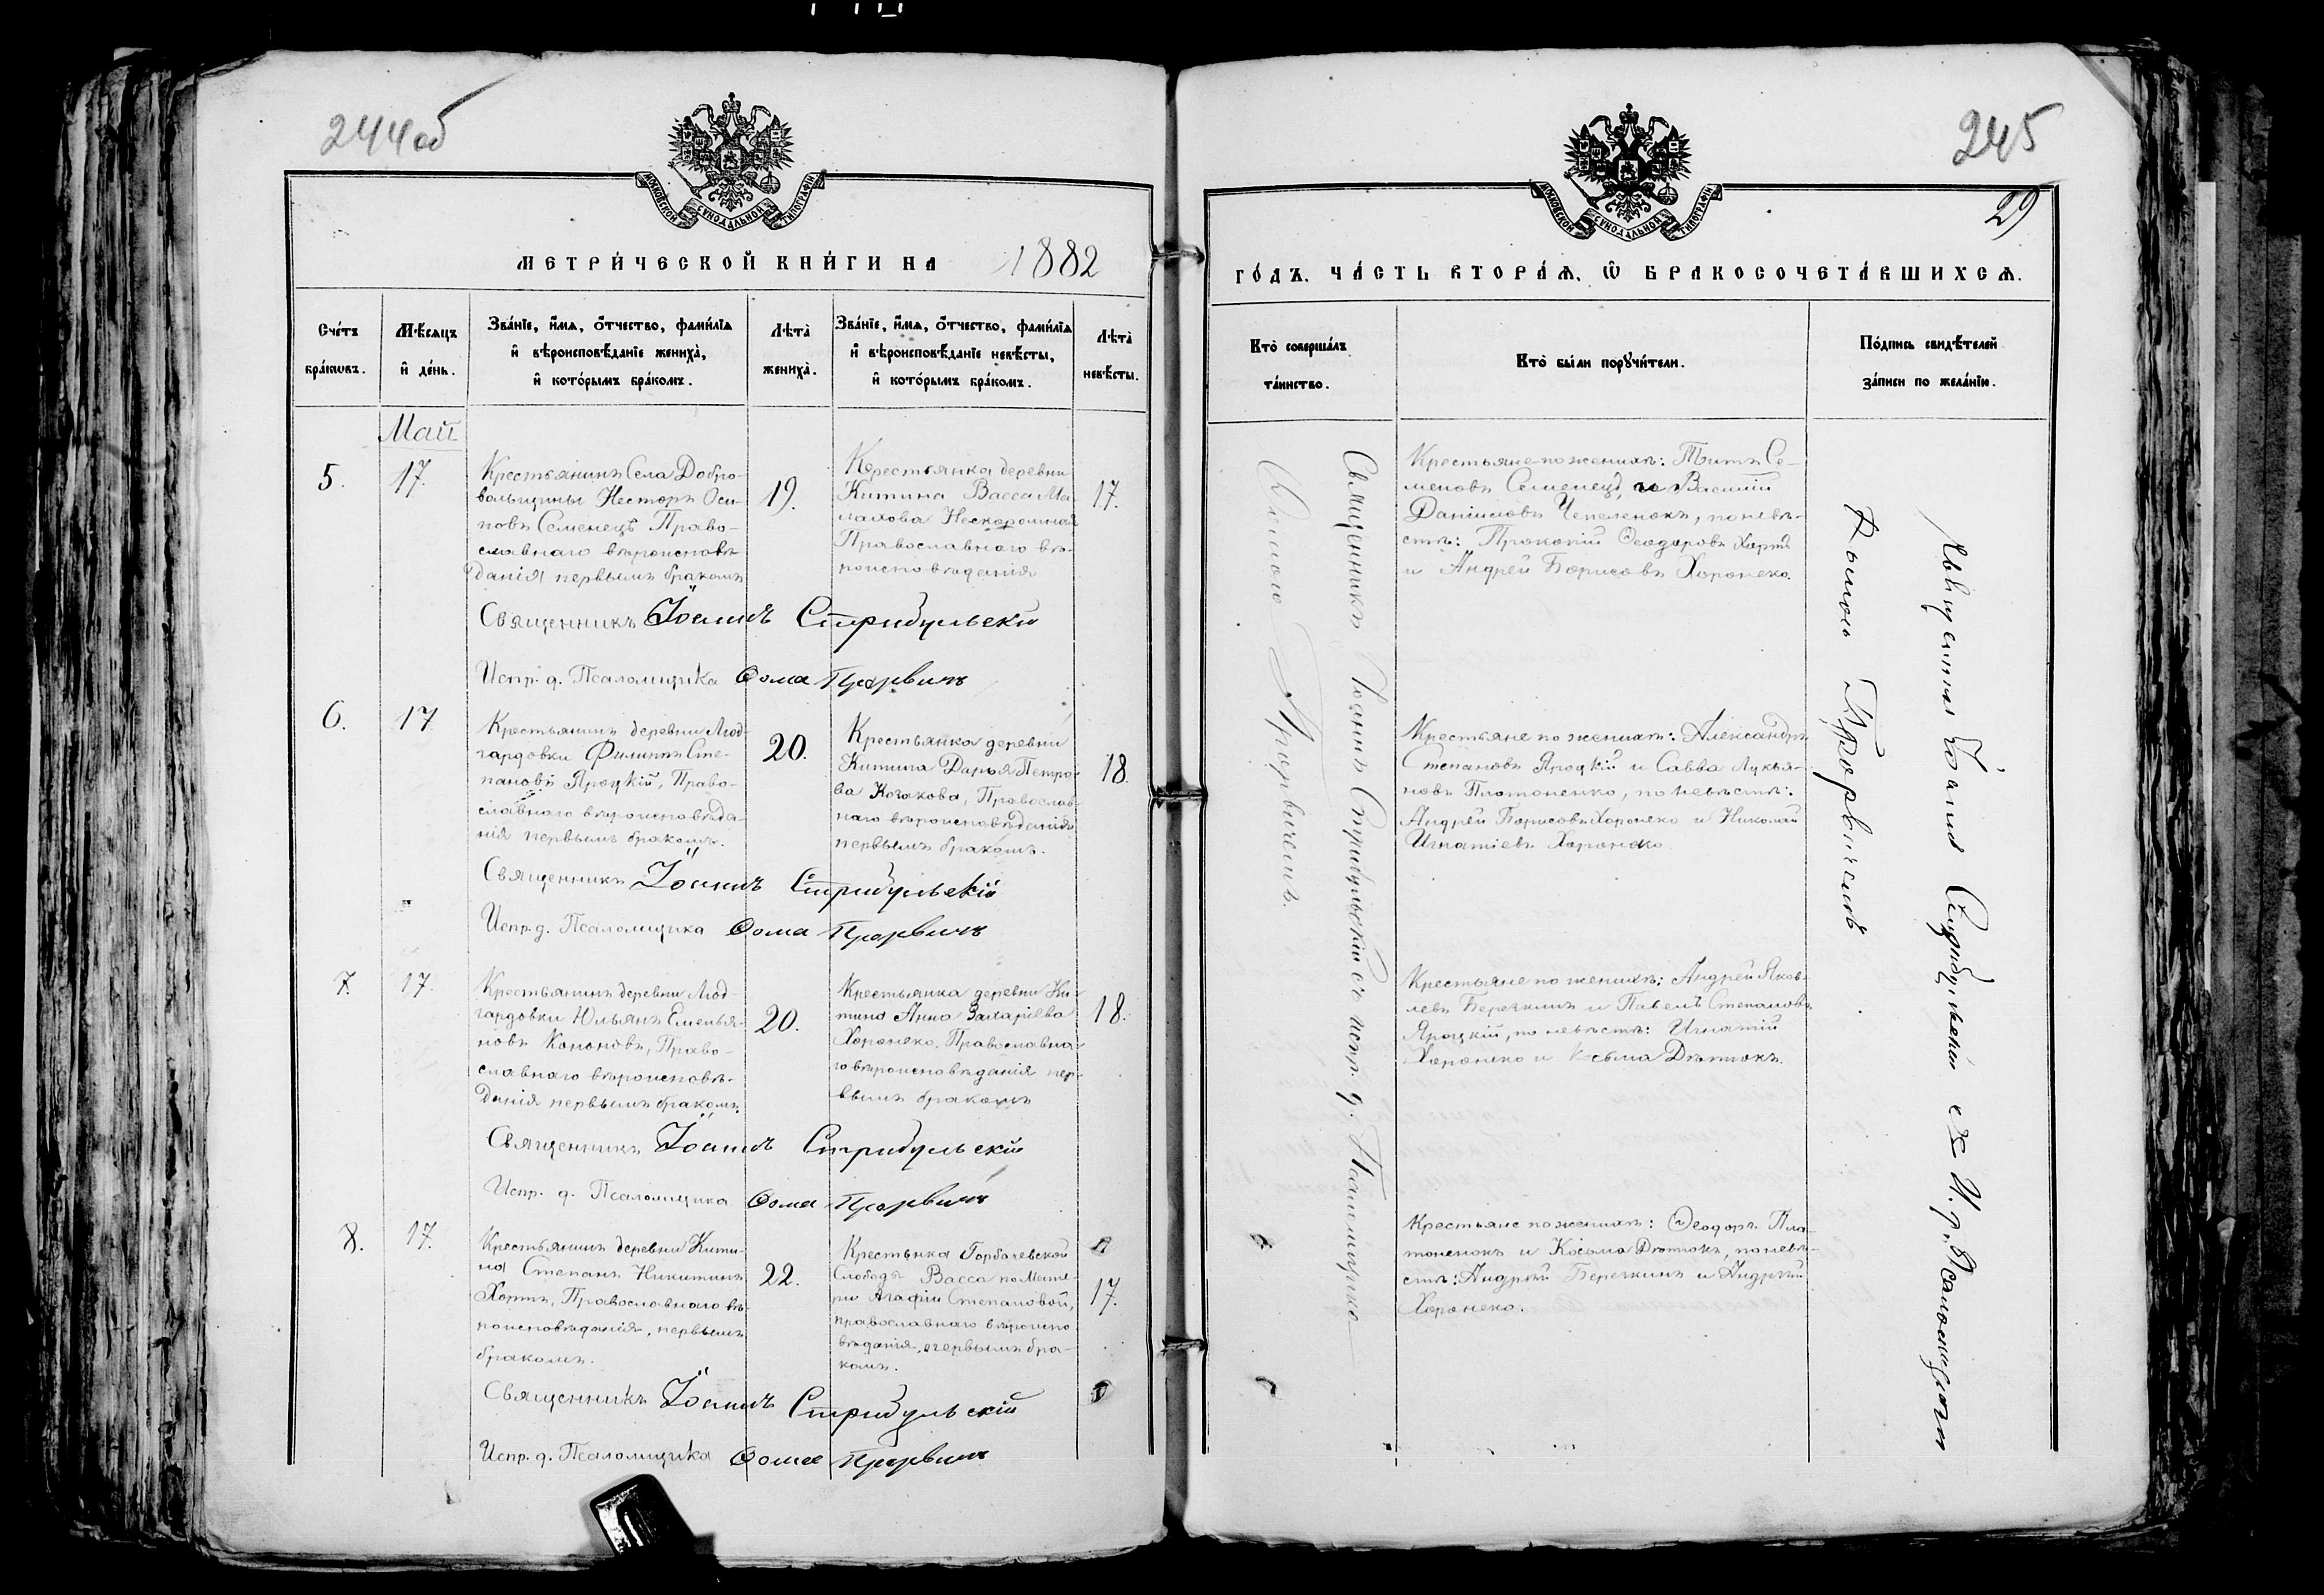 244об
МОСКОВСКОЙ СѴНОДАЛЬНОЙ ТИПОГРАФІИ
МЕТРИ́ЧЕСКОЙ КНИ́ГИ НА 1882
Сче́тъ бра́ковъ.
Мѣ́сяцъ и҆ де́нь.
Зва́нїе, и҆́мѧ, ѻ҆́тчество, фами́лїѧ и҆ вѣроисповѣ́данїе жениха̀, и҆ кото́рымъ бра́комъ.
Лѣта̀ жениха̀.
Зва́нїе, и҆́мѧ, ѻ҆́тчество, фами́лїѧ и҆ вѣроисповѣ́данїе невѣ́сты, и҆ кото́рымъ бра́комъ.
Лѣта̀ невѣ́сты.
Май
5.
17.
Крестьянинъ Села Добро-
вольщины Несторъ Оси-
повъ Семенецъ Право-
славнаго вѣроисповѣ-
данія первымъ бракомъ
19.
Крестьянка деревни
Китина Васса Ма-
лахова Нескоромная
Православнаго вѣ-
роисповѣданія
17.
Священникъ Іоаннъ Стрибульскій
Испр. д. Псаломщика Ѳома
6.
17
Крестьянинъ деревни Люд-
гардовки Филиппъ Сте-
пановъ Яроцкій, Право-
славнаго вѣроисповѣда-
нія первымъ бракомъ.
20.
Крестьянка деревни
Китина Дарья Петро-
ва Кочакова, Православ-
наго вѣроисповѣданія
первымъ бракомъ.
18.
Священникъ Іоаннъ Стрибульскій
Испр. д. Псаломщика Ѳома
7.
17.
Крестьянинъ деревни Люд-
гардовки Юльянъ Емелья-
новъ Кононовъ, Право-
славнаго вѣроисповѣ-
данія первымъ бракомъ.
20.
Крестьянка деревни Ки-
тина Анна Захаріева
Хоронеко, Православна-
го вѣроисповѣданія пер-
вымъ бракомъ
18.
Священникъ Іоаннъ Стрибульскій
Испр. д. Псаломщика Ѳома
8.
17.
Крестьянинъ деревни Кити-
на Степанъ Никитинъ
Хортъ, Православнаго вѣ-
роисповѣданія, первымъ
бракомъ.
22.
Крестьнка Горбачевской
Слободы Васса по Мате-
ри Агафіи Степановой,
православнаго вѣроиспо
вѣданія, первымъ бра-
комъ.
17.
Священникъ Іоаннъ Стрибульскій
Испр. д. Псаломщика Ѳома
245
29
МОСКОВСКОЙ СѴНОДАЛЬНОЙ ТИПОГРАФІИ
ГО́ДЪ. ЧА́СТЬ ВТОРА́Ѧ, Ѡ҆ БРАКОСОЧЕТА́ВШИХСѦ.
Кто̀ соверша́лъ та́инство.
Кто̀ бы́ли порꙋчи́тели.
По́дпись свидѣ́телей за́писи по жела́нїю.
Священникъ Іоаннъ Стрибульскій съ испр. д. Псаломщика
Крестьяне по женихѣ: Титъ Се-
меновъ Семенецъ, и Василій
Даніиловъ Чепеленокъ, по невѣ-
стѣ: Прокопій Ѳеодоровъ Хортъ
и Андрей Борисовъ Хоронеко.
Крестьяне по женихѣ: Александръ
Степановъ Яроцкій и Савва Лукья-
новъ Платоненко, по невѣстѣ:
Андрей Борисовъ Хоронеко и Николай
Игнатіевъ Хоронеко
Крестьяне по женихѣ: Андрей Яков-
левъ Беречкинъ и Павелъ Степановъ
Яроцкій, по невѣстѣ: Игнатій
Хоронеко и Косьма Дѣтюкъ.
Крестьяне по женихѣ: Ѳеодоръ Пла-
тоненокъ и Косьма Дѣтюкъ, по невѣ-
стѣ: Андрей Беречкинъ и Андрей
Хоронеко.
Священникъ Іоаннъ Стрибульскій съ И. д. Псаломщика